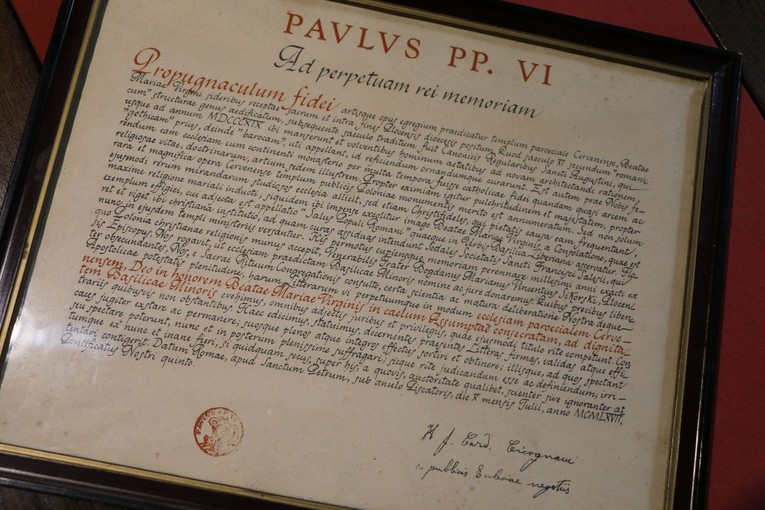 PAVLVS PP. VI
Ad perpetuam rei memoriam
Propugnaculum fidei artisque opus egregium praedicatur templum paroeciae Cervensae, Beatae
Mariae Virgini sideribus receptae sacrum et intra fines Plocensis dioecesis positum. Quod saeculo XI secundum "romani-
cum" structurae genus aedificatum, subsequente saeculo traditum fuit Canonicis Regularibus Sancti Augustini, qui
usque ad annum MDCCCXIX ibi manserunt et volventibus hominum aetatibus ad novam architectandi rationem,
"gothicam" prius, deinde "baroam", uti appellant, id reficiendum ornandumque curarunt. Est autem prae Nobis fe-
rendum eam ecclesiam cum continenti monasterio per multa tempora fuisse catholicae fidei quandam quasi arcem ac
religiosae vitae, doctrinarum, artium sedem illustrem. Propter eximiam igitur pulchritudinem et majestatem, propter
rara et magnifica opera Cervense templum publicis Poloniae monumentis merito est annumeratum. Sed non solum
ejusmodi rerum mirandarum studiosos ecclesia allicit, sed etiam Christifideles, qui pietatis causa eam frequentant,
maxime religione mariali inducti, siquidem ibi impense excolitur imago Beatae Mariae Virginis, a Consolatione, quae est
exemplum effigiei, cui adjecta est appellatio "Salus Populi Romani" quaeque in Urbis Basilica Liberiana asservatur. Flo-
ret et viget ibi christiana institutio, ad quam curas assiduas intendunt Sodales Societatis Sancti Francisci Salesii, qui
nunc in ejusdem templi ministeriis versantur. His permotis cupiensque memoriam perennare millesimi anni exacti ex
quo Polonia christianae religionis munus accepit, Venerabilis Frater Bogdanus Marianus Vincentius Sikorski, Plocen-
sis Episcopus, Nos rogavit, ut ecclesiam praedictam Basilicae Minoris nomine ac jure donaremus. Quibus precibus liben-
ter obsecundantes, Nos, e Sacrae Rituum Congregationis consulto, certa scientia ac matura deliberatione Nostra deque
Apostolicae potestatis plenitudine, harum Litterarum vi perpetuumque in modum ecclesiam paroecialem Cerve-
nensem, Deo in honorem Beatae Mariae Virginis in caelum Assumptae consecratam, ad dignita-
tem Basilicae Minoris evehimus, omnibus adjectis juribus et privilegiis, quae ejusmodi titulo rite competunt. Con-
trariis quibusvis non obstantibus. Haec edicimus, statuimus, decernentes praesentes Litteras firmas, validas atque effi-
caces jugiter exstare ac permanere; suosque plenos atque integros effectus sortiri et obtinere; illisque, ad quos spectant
seu spectare poterunt, nunc et in posterum plenissime suffragari; sicque rite judicandum esse ac definiendum; irri-
tumque ex nunc et inane fieri, si quidquam secus, super his, a quovis, auctoritate qualibet, scienter sive ignoranter at-
tentari contigerit. Datum Romae, apud Sanctum Petrum, sub anulo Piscatoris, die X mensis Julii, anno MCMLXVII,
Pontificatus Nostri quinto.
H. J. Card. Cicognani
a publicis Ecclesiae negotiis